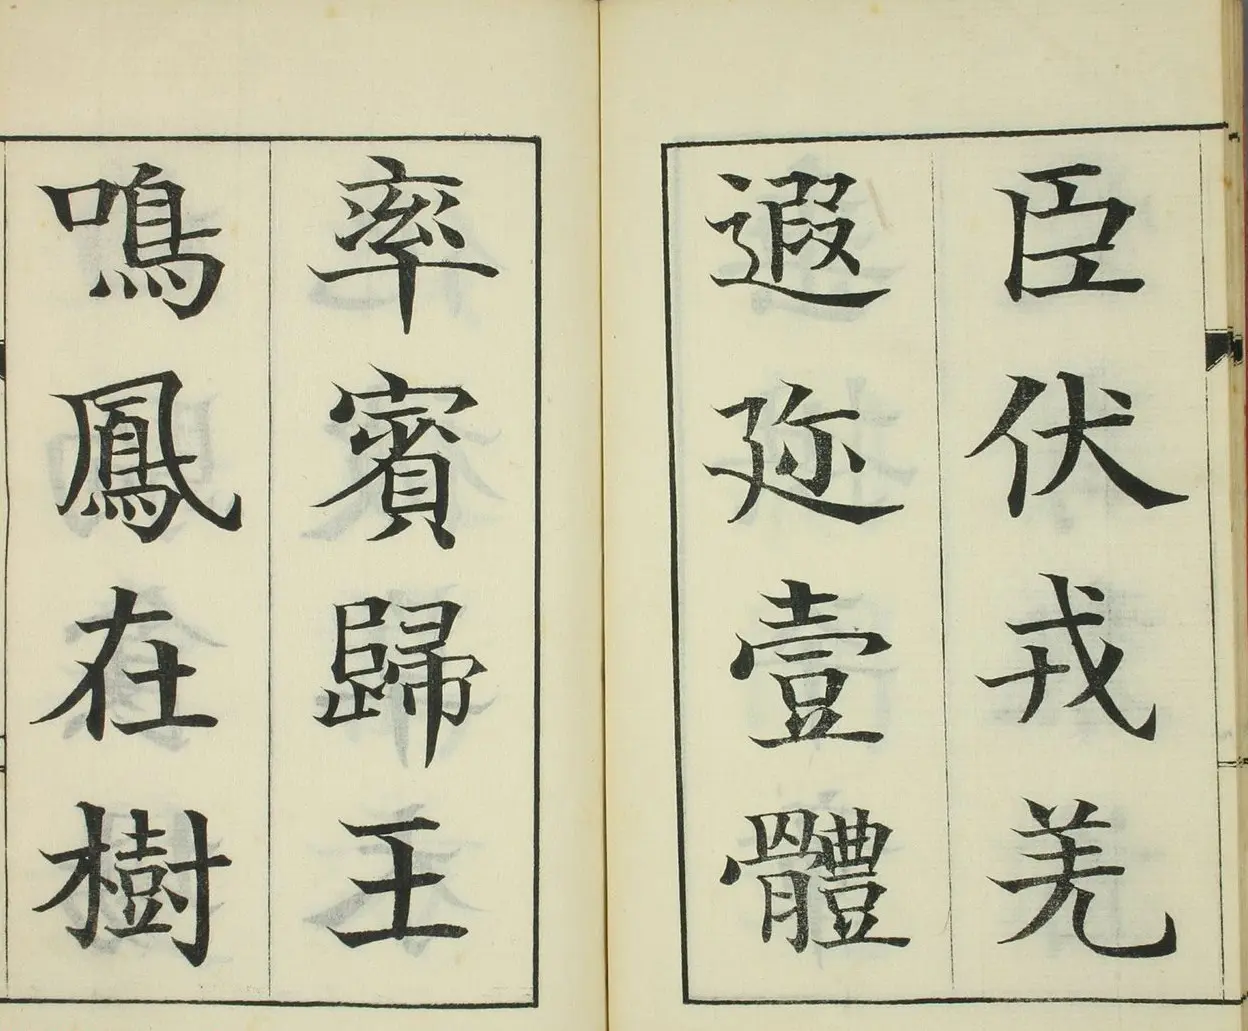 臣伏戎羌
遐迩壹體
率賓歸王
鳴鳳在樹